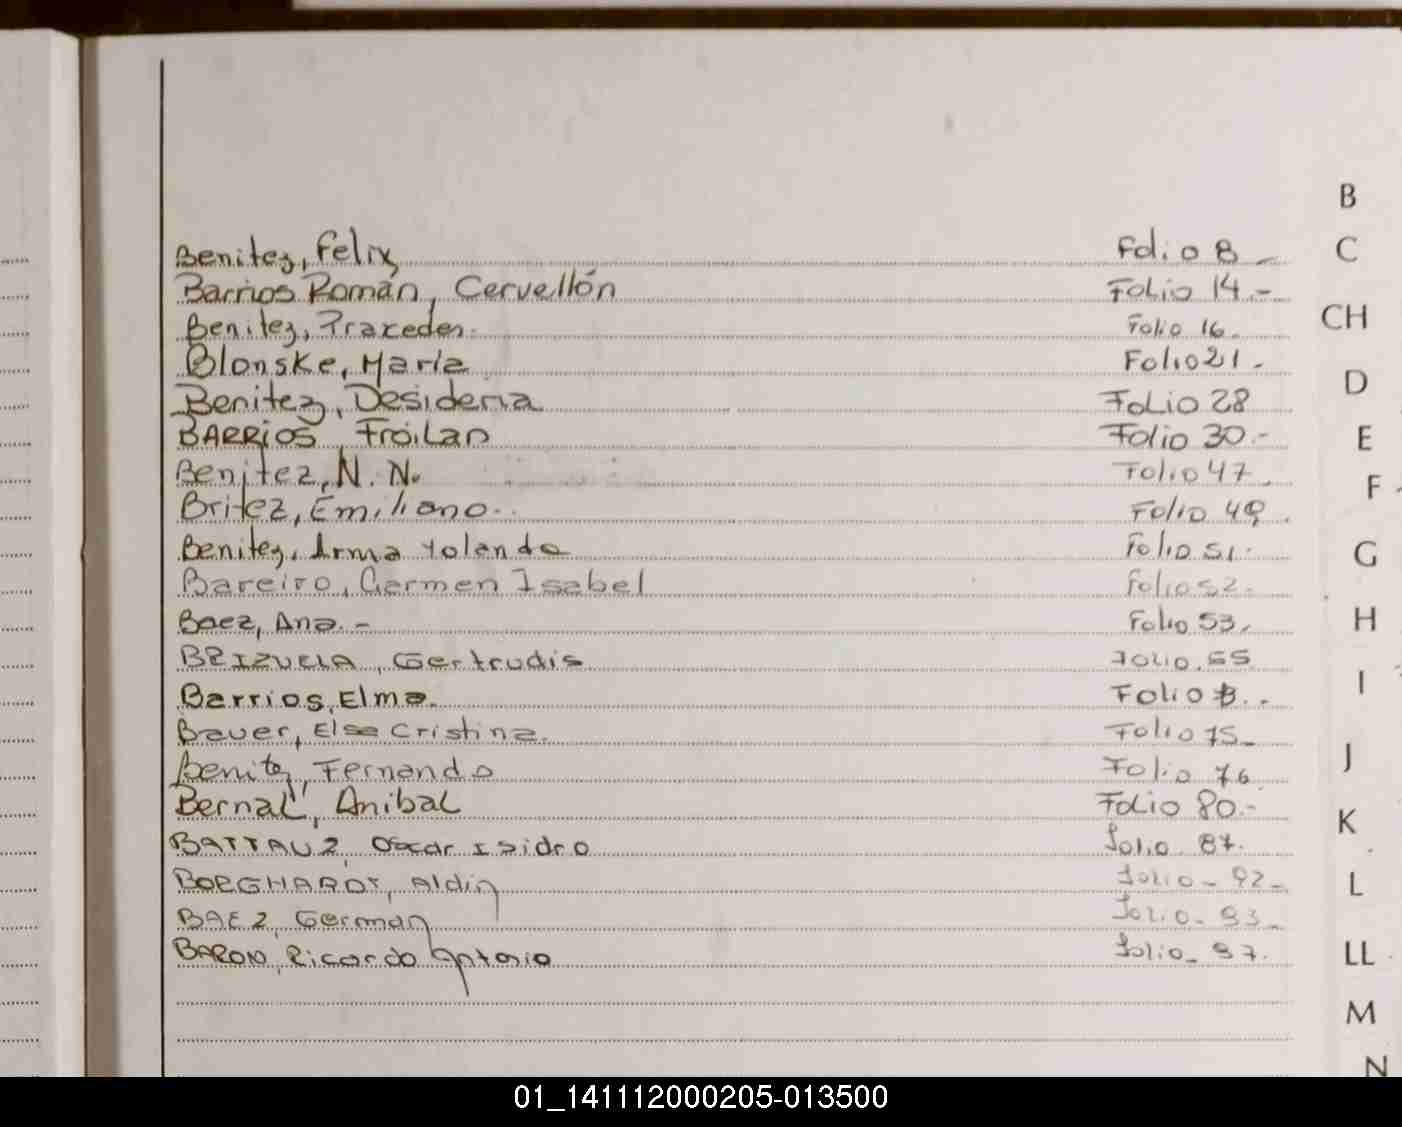 B
Benitez, Felix Folio 8 -
C
Barrios Román, Cervellón Folio 14.-
CH
Benitez, Praxedes. Folio 16.
Blonske, Maria Folio 21.
D
Benitez, Desideria Folio 28
BARRIOS, Froilan Folio 30.-
E
Benitez, N.N. Folio 47.
F
Britez, Emiliano.. Folio 49.
Benitez, Irma Yolanda Folio 51.
G
Bareiro, Carmen Isabel Folio 52.
Baez, Ana. - Folio 53.
H
BRIZUELA, Gertrudis Folio.
Barrios, Elma. Folio
I
Bauer, Elsa Cristina. Folio 75-
J
Benitez, Fernando Folio 76
Bernal, Anibal Folio 80.-
K
BATTAUZ, Oscar Isidro Folio 87.
BORGHARDT, Aldin Folio - 92-
L
BAEZ, German Folio - 93-
BARON, Ricardo Antonio Folio - 97.
LL
M
N
01_141112000205-013500